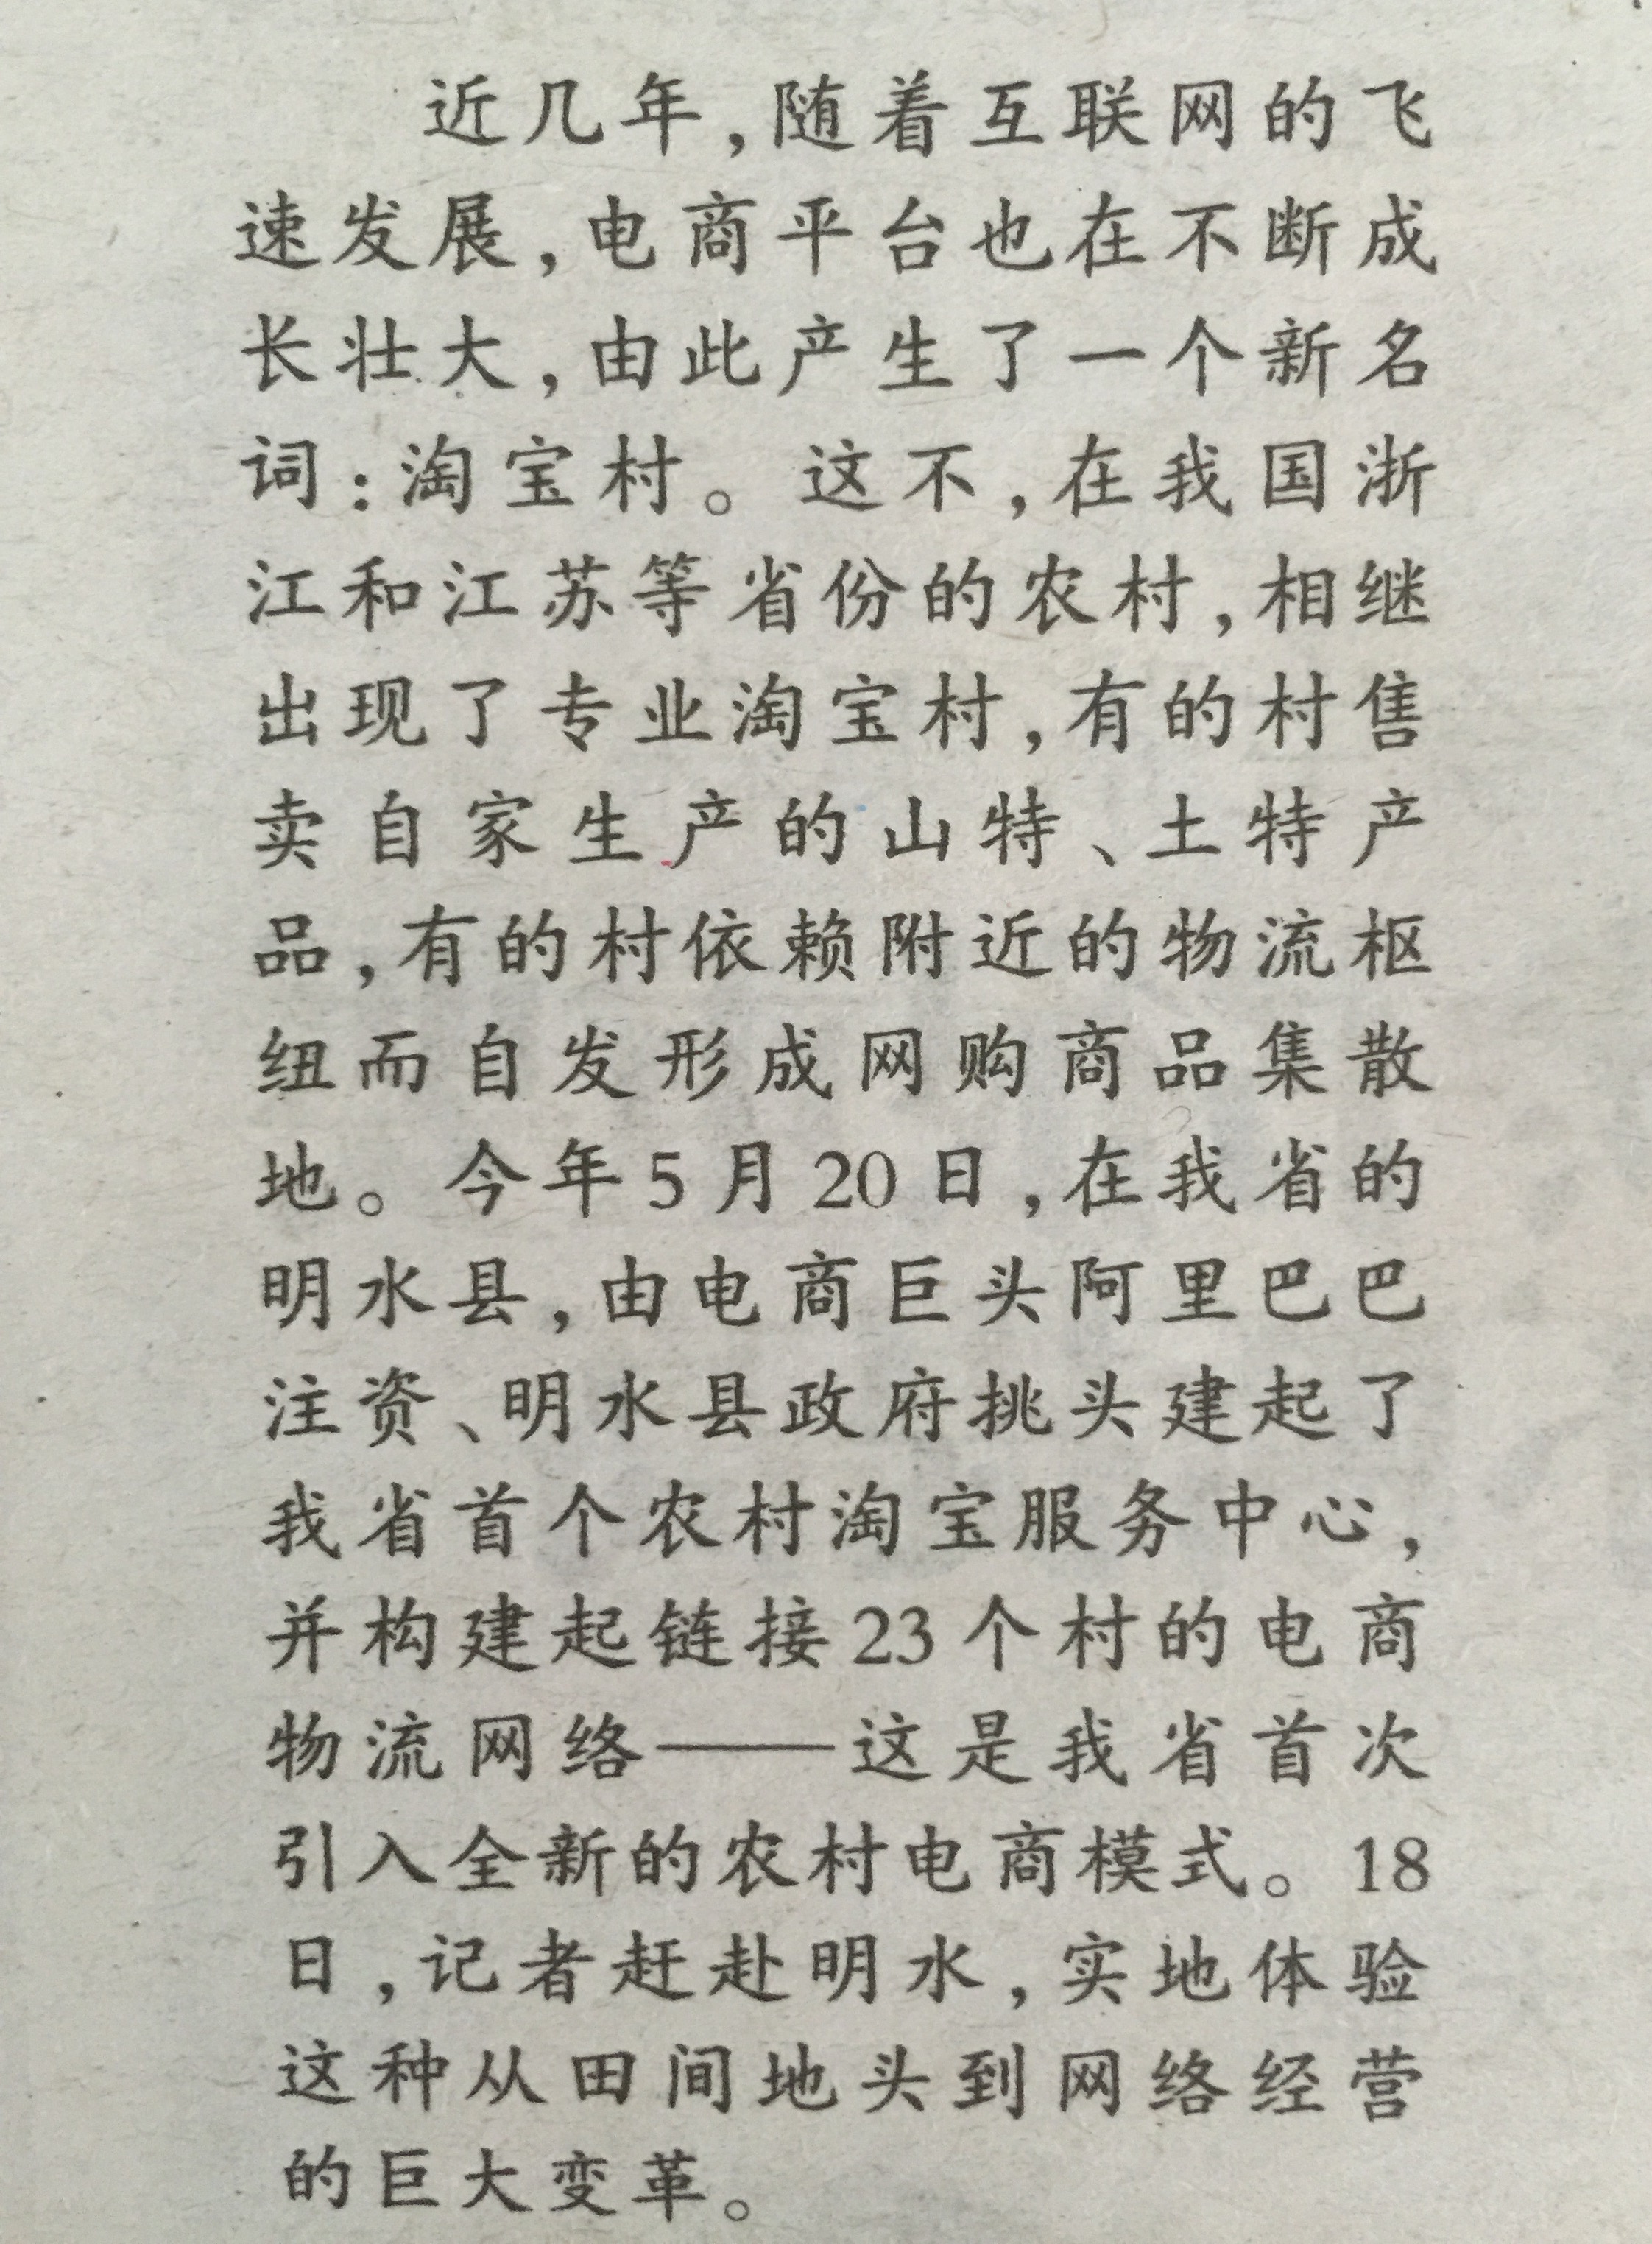 近几年，随着互联网的飞
速发展，电商平台也在不断成
长壮大，由此产生了一个新名
词：淘宝村。这不，在我国浙
江和江苏等省份的农村，相继
出现了专业淘宝村，有的村售
卖自家生产的山特、土特产
品，有的村依赖附近的物流枢
纽而自发形成网购商品集散
地。今年5月20日，在我省的
明水县，由电商巨头阿里巴巴
注资、明水县政府挑头建起了
我省首个农村淘宝服务中心，
并构建起链接23个村的电商
物流网络——这是我省首次
引入全新的农村电商模式。18
日，记者赶赴明水，实地体验
这种从田间地头到网络经营
的巨大变革。